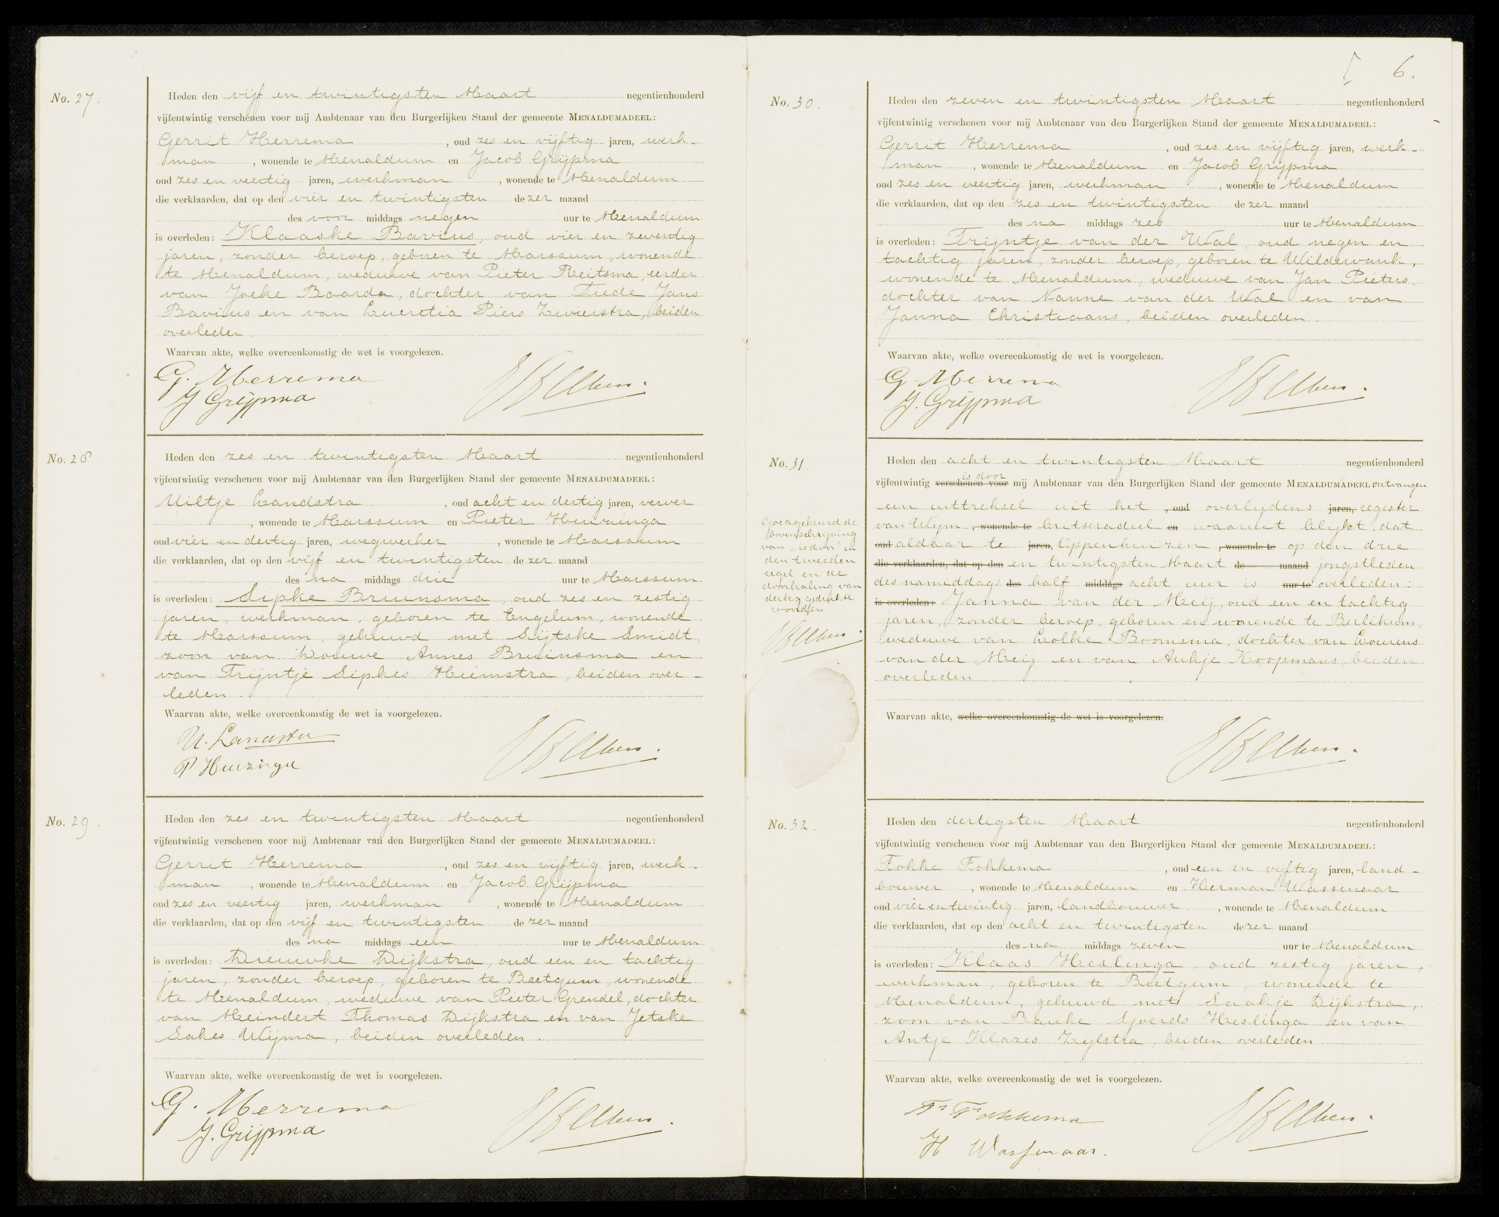 No. 27.
Heden den vijf en twintigsten Maart negentienhonderd
vijfentwintig verschenen voor mij Ambtenaar van den Burgerlijken Stand der gemeente MENALDUMADEEL:
Gerrit Herrema, oud zes en vijftig jaren, werk-
man, wonende te Menaldum en Jacob Grijpma
oud zes en veertig jaren, werkman, wonende te Menaldum
die verklaarden, dat op den vier en twintigsten dezer maand
des voor middags negen uur te Menaldum
is overleden: Klaaske Bavius, oud vier en zeventig
jaren, zonder beroep, geboren te Marssum, wonende
te Menaldum, weduwe van Pieter Reitsma, eerder
van Joeke Boarda, dochter van Tiede Jans
Bavius en van Lucretia Piers Zwierstra, beiden
overleden
Waarvan akte, welke overeenkomstig de wet is voorgelezen.
G. Herrema
J Grijpma
No. 28
Heden den zes en twintigsten Maart negentienhonderd
vijfentwintig verschenen voor mij Ambtenaar van den Burgerlijken Stand der gemeente MENALDUMADEEL:
Uiltje Landstra, oud acht en dertig jaren, verver
, wonende te Marssum en Pieter Huizinga
oud vier en dertig jaren, wegwerker, wonende te Marssum
die verklaarden, dat op den vijf en twintigsten dezer maand
des na middags drie uur te Marssum
is overleden: Sipke Bruinsma, oud zes en zestig
jaren, werkman, geboren te Engelum, wonende
te Marssum, gehuwd met Sijtske Smidt,
zoon van Douwe Annes Bruinsma en
van Trijntje Sipkes Hiemstra, beiden over-
leden.
Waarvan akte, welke overeenkomstig de wet is voorgelezen.
U. Landstra
P Huizinga
No. 29.
Heden den zes en twintigsten Maart negentienhonderd
vijfentwintig verschenen voor mij Ambtenaar van den Burgerlijken Stand der gemeente MENALDUMADEEL:
Gerrit Herrema, oud zes en vijftig jaren, werk-
man, wonende te Menaldum en Jacob Grijpma
oud zes en veertig jaren, werkman, wonende te Menaldum
die verklaarden, dat op den vijf en twintigsten dezer maand
des na middags een uur te Menaldum
is overleden: Dieuwke Dijkstra, oud een en tachtig
jaren, zonder beroep, geboren te Beetgum, wonende
te Menaldum, weduwe van Pieter Grendel, dochter
van Meindert Thomas Dijkstra en van Jetske
Sakes Wijma, beiden overleden.
Waarvan akte, welke overeenkomstig de wet is voorgelezen.
G. Herrema
J. Grijpma
6.
No. 30.
Heden den zeven en twintigsten Maart negentienhonderd
vijfentwintig verschenen voor mij Ambtenaar van den Burgerlijken Stand der gemeente MENALDUMADEEL:
Gerrit Herrema, oud zes en vijftig jaren, werk-
man, wonende te Menaldum en Jacob Grijpma
oud zes en veertig jaren, werkman, wonende te Menaldum
die verklaarden, dat op den zes en twintigsten dezer maand
des na middags zes uur te Menaldum
is overleden: Trijntje van der Wal, oud negen en
tachtig jaren, zonder beroep, geboren te Wildervank,
wonende te Menaldum, weduwe van Jan Pieters
dochter van Nanne van der Wal en van
Janna Christiaans, beiden overleden.
Waarvan akte, welke overeenkomstig de wet is voorgelezen.
G. Herrema
J. Grijpma
No. 31
Heden den acht en twintigsten Maart negentienhonderd
vijfentwintig verschenen voor is door mij Ambtenaar van den Burgerlijken Stand der gemeente MENALDUMADEEL ontvangen
een uittreksel uit het , oud overlijdens jaren, register
van Wijm , wonende te britseradeel en waaruit blijkt, dat
oud aldaar te jaren, Oppenhuizen , wonende te op den drie
die verklaarden, dat op den en twintigsten Maart de maand jongstleden
des namiddags des half middags acht uur is uur te overleden:
is overleden: Janna van der Meij, oud een en tachtig
jaren, zonder beroep, geboren en wonende te Berlikum,
weduwe van Eolke Boomsma, dochter van Louwrens
van der Meij en van Aukje Koopmans, beiden
overleden
Waarvan akte, welke overeenkomstig de wet is voorgelezen.
Goedgekeurd de
bovenschrijving
van woorden in
den tweeden
regel en de
doorhaling van
dertig gedrukte
woorden
No. 32.
Heden den dertigsten Maart negentienhonderd
vijfentwintig verschenen voor mij Ambtenaar van den Burgerlijken Stand der gemeente MENALDUMADEEL:
Fokke Fokkema, oud een en vijftig jaren, land-
bouwer, wonende te Menaldum en Herman Wassenaar
oud vier en twintig jaren, landbouwer, wonende te Menaldum
die verklaarden, dat op den acht en twintigsten dezer maand
des na middags zeven uur te Menaldum
is overleden: Klaas Heslinga, oud zestig jaren,
werkman, geboren te Beetgum, wonende te
Menaldum, gehuwd met Saakje Dijkstra,
zoon van Bauke Sjoerds Heslinga en van
Antje Klazes Zijlstra, beiden overleden
Waarvan akte, welke overeenkomstig de wet is voorgelezen.
Fs Fokkema
H Wassenaar.